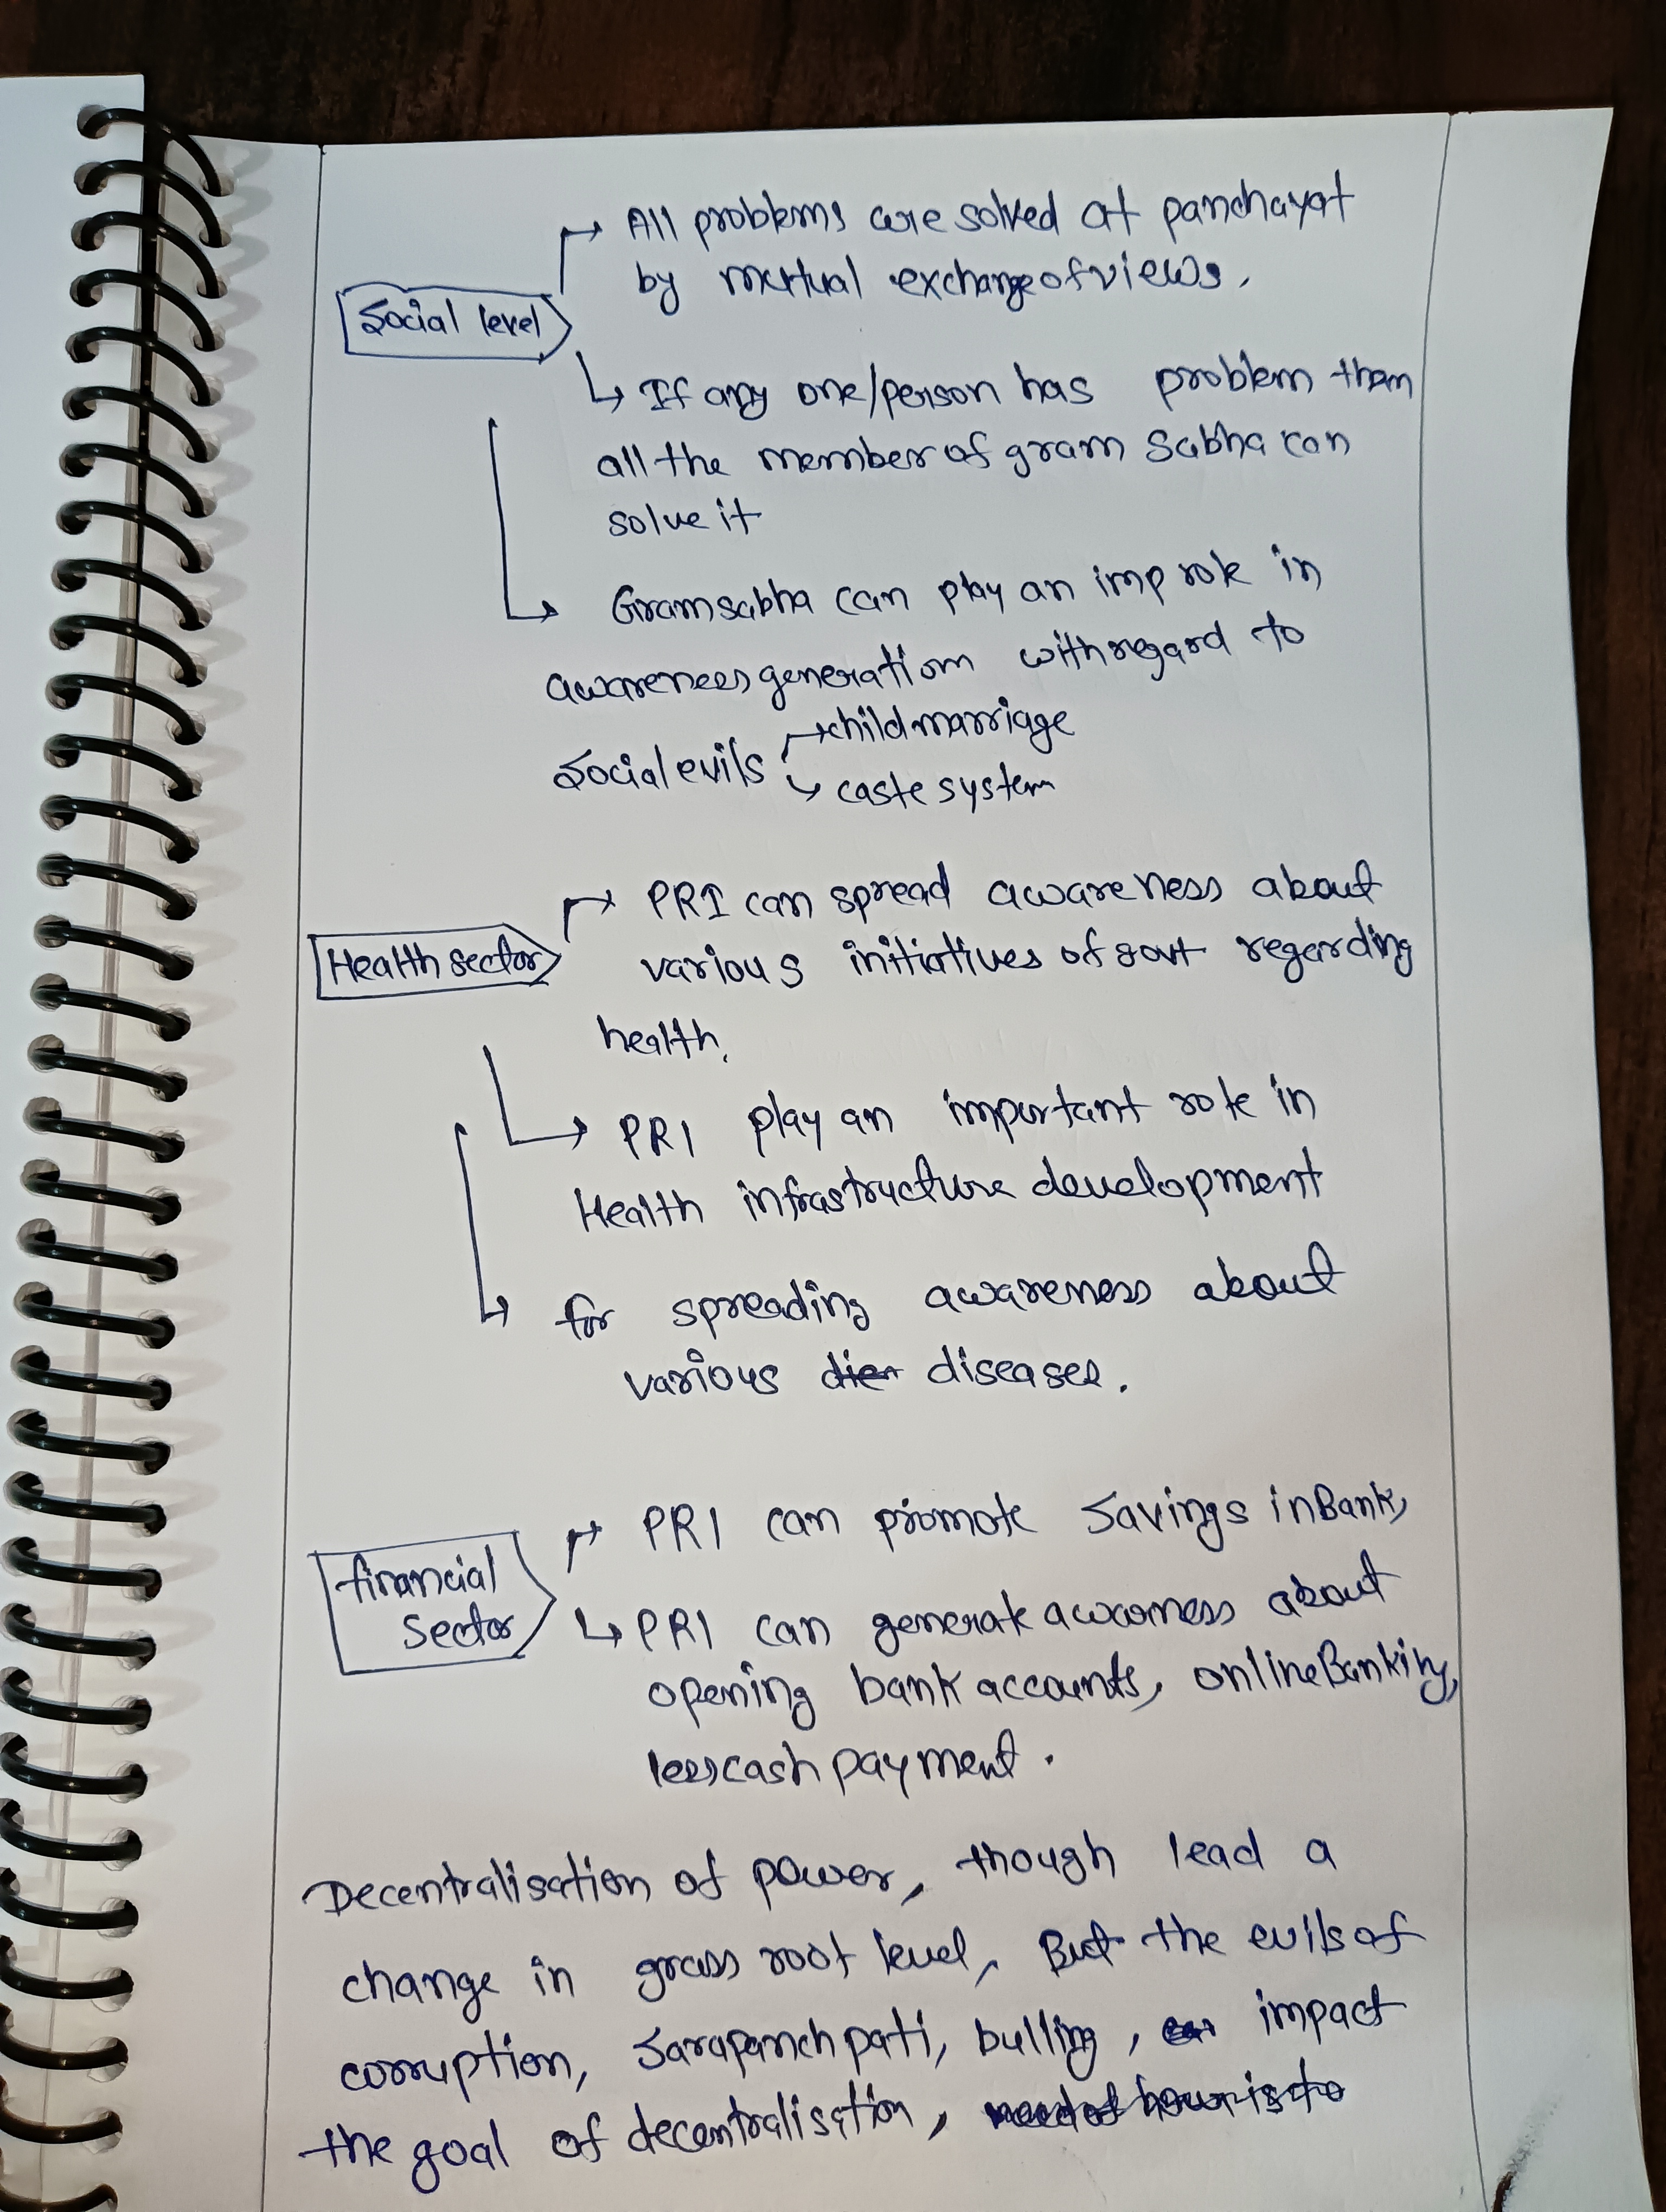 All problems are solved at panchayat
by mutual exchange of views.
Social level
If any one/person has problem then
all the member of gram sabha can
solve it
Gramsabha can play an imp role in
awareness generation with regard to
Social evils
child marriage
caste system
PRI can spread awareness about
Health sector
various initiatives of govt regarding
health.
PRI play an important role in
Health infrastructure development
for spreading awareness about
various dies diseases.
PRI can promote savings in Bank,
financial
sector
PRI can generate awarness about
opening bank accounts, online Banking,
less cash payment.
Decentralisation of power, though lead a
change in grass root level, But the evils of
corruption, Sarapanch pati, bulling, impact
the goal of decentralisation, need of hour is to